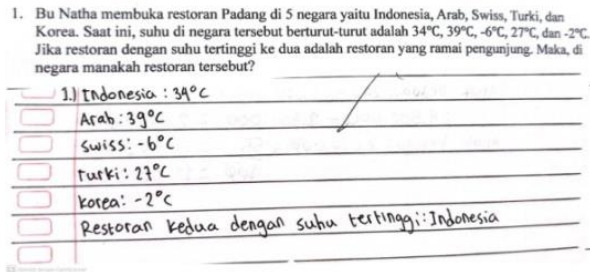 1. Bu Natha membuka restoran Padang di 5 negara yaitu Indonesia, Arab, Swiss, Turki, dan
Korea. Saat ini, suhu di negara tersebut berturut-turut adalah 34°C, 39°C, -6°C, 27°C, dan -2°C.
Jika restoran dengan suhu tertinggi ke dua adalah restoran yang ramai pengunjung. Maka, di
negara manakah restoran tersebut?
1.) Indonesia : 34°C
Arab : 39°C
Swiss : -6°C
Turki : 27°C
Korea : -2°C
Restoran kedua dengan suhu tertinggi : Indonesia